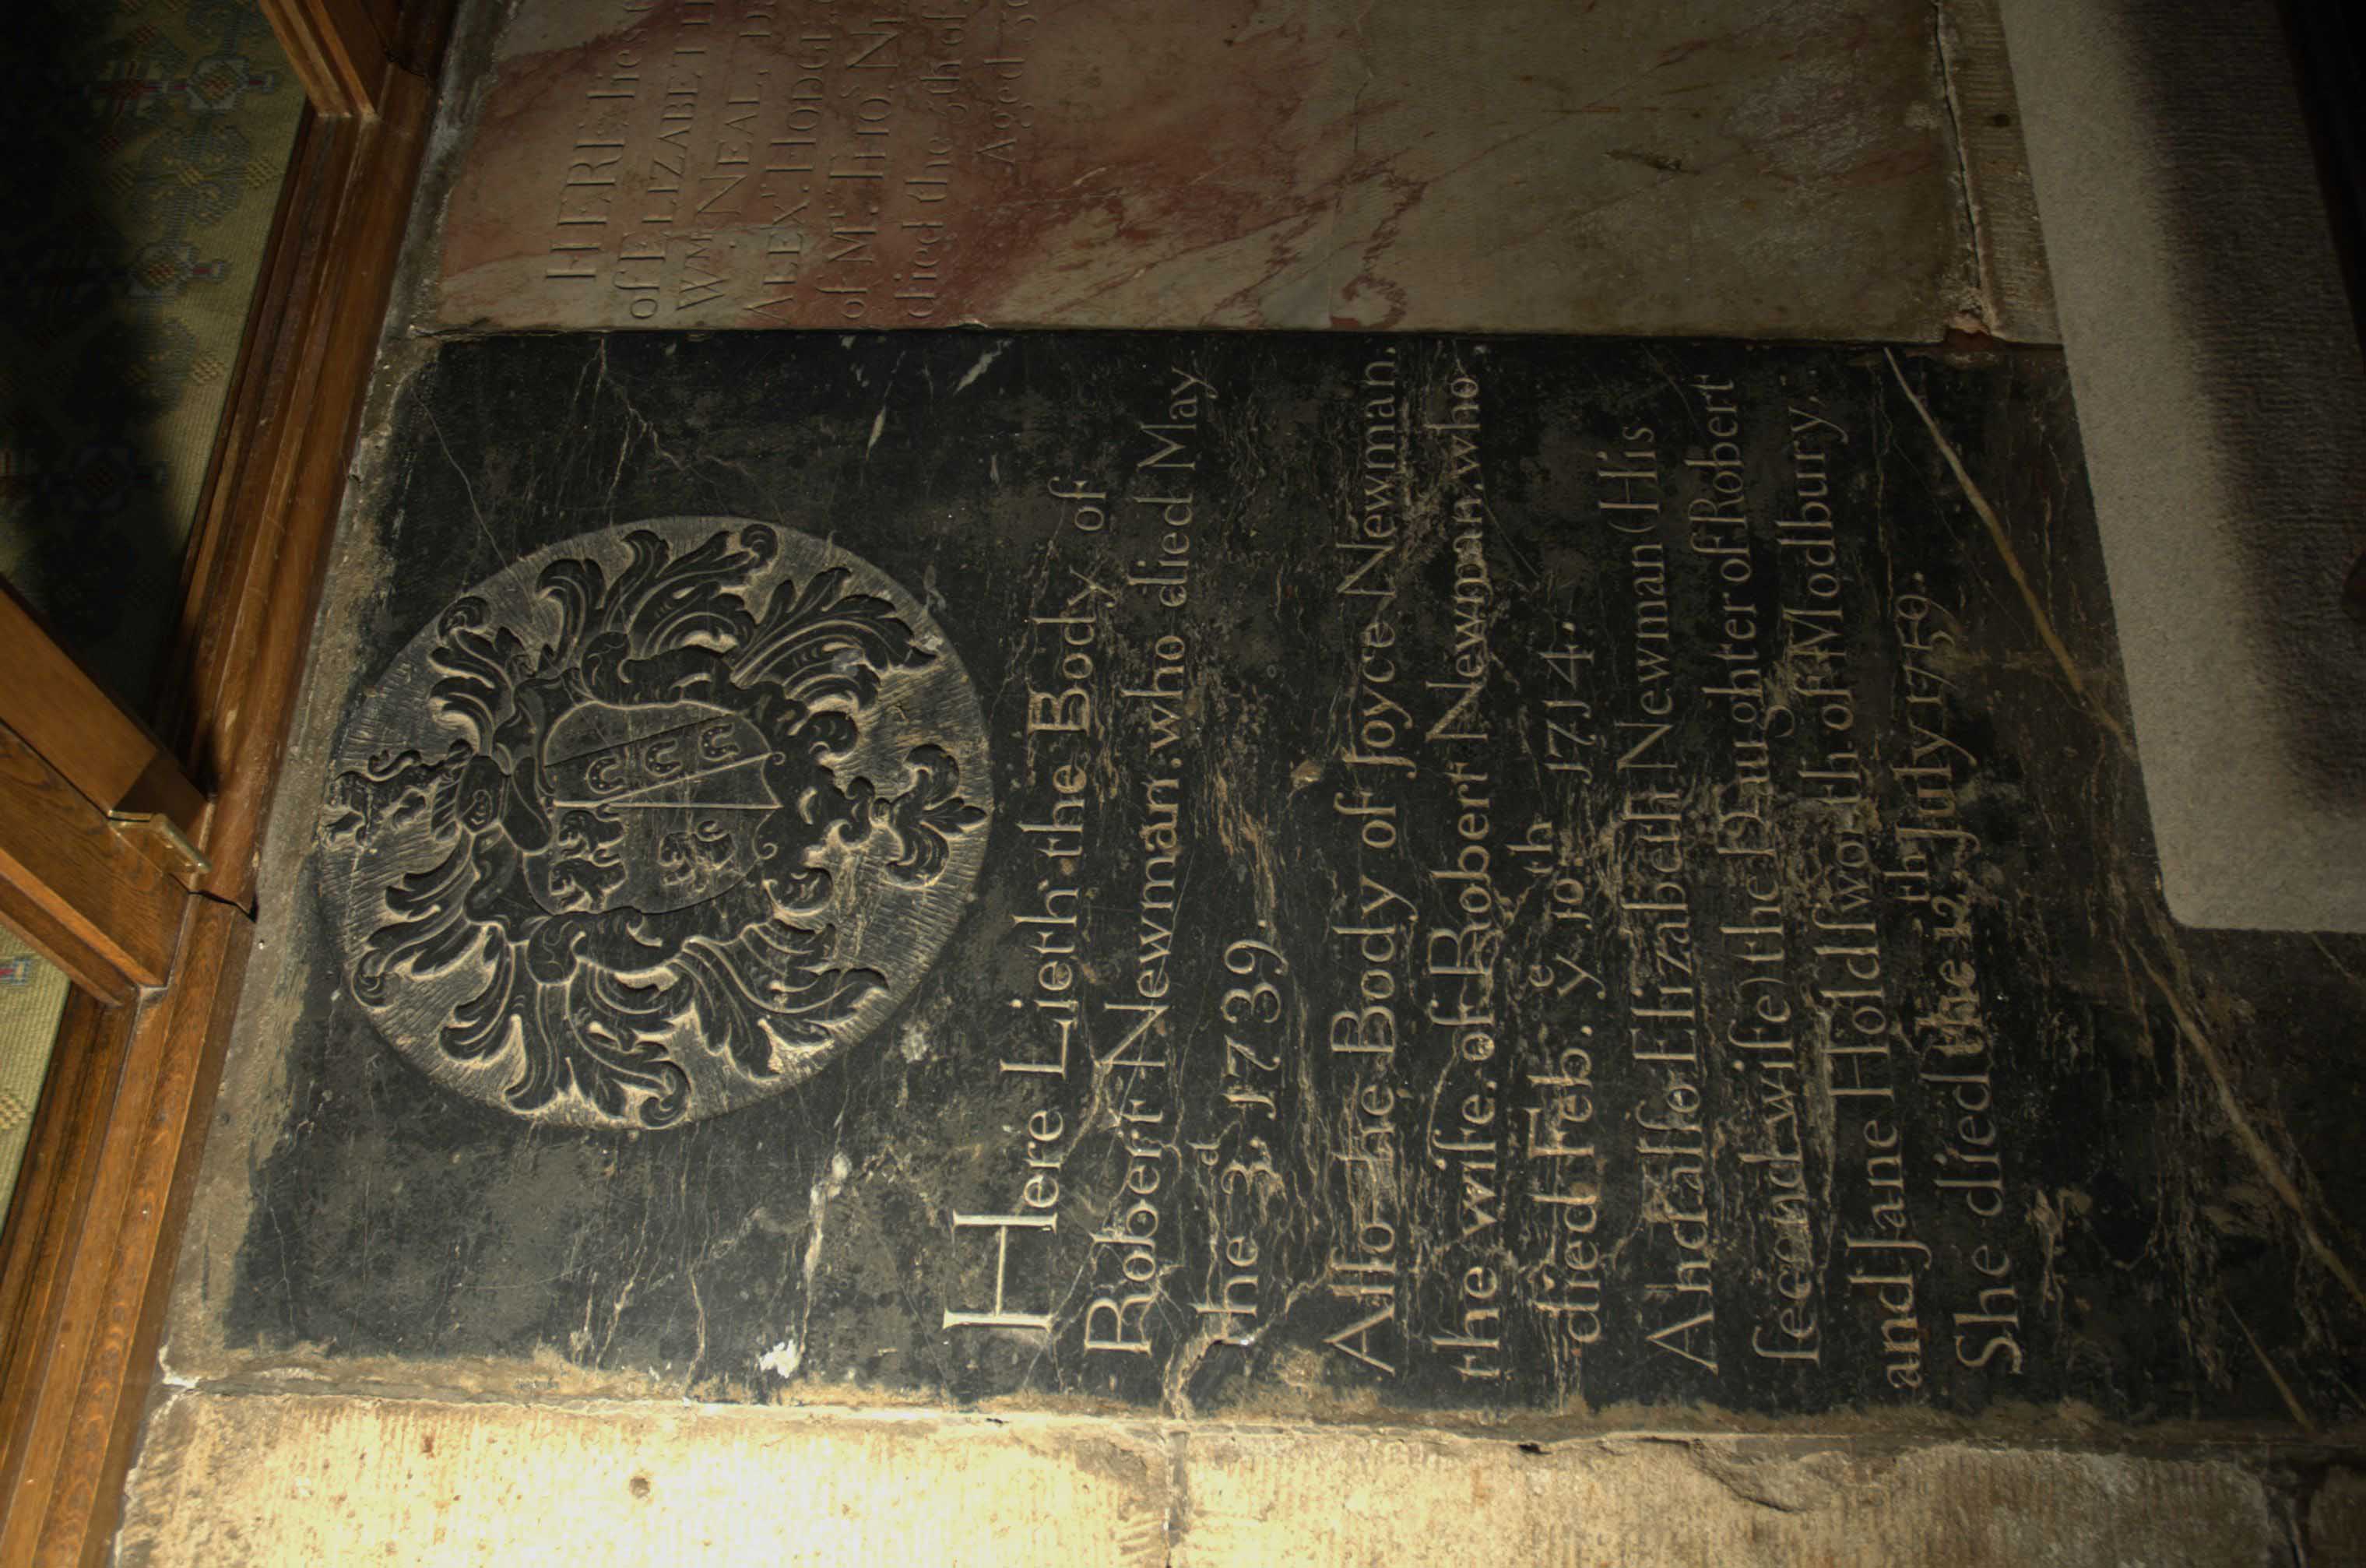 HERE lies
of ELIZABETH
Wm. NEAL, D
ALEXr. HODGE
of Mr. THOs. N
died the 5th of
Aged
Here Lieth the Body of
Robert Newman. who died May
the 3d. 1739.
Alſo the Body of Joyce Newman.
the wife. of Robert Newman. who
died Feb. ye 10th 1714.
And alſo Elizabeth Newman (His
ſecond wife) the Daughter of Robert
and Jane Holdſworth of Modbury.
She died the 12th July 1759.